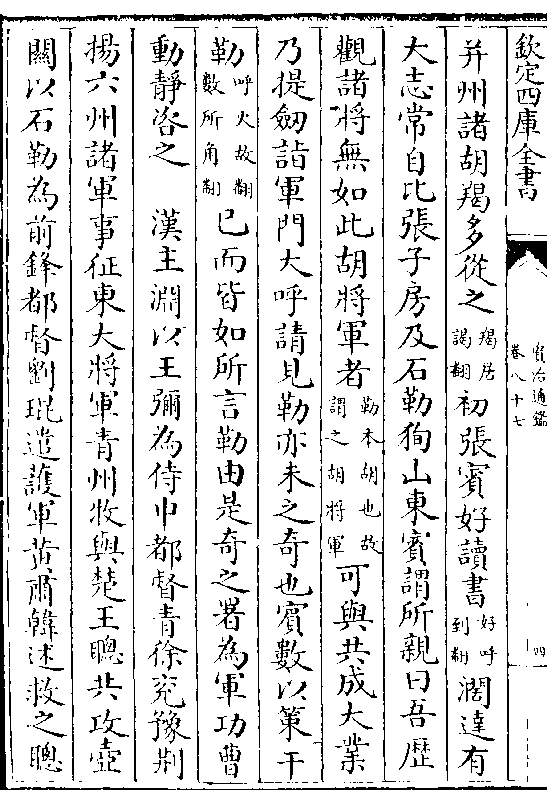 欽定四庫全書
資治通鑑
卷八十七
四
并州諸胡羯多從之羯居謁翻初張賓好讀書好呼到翻濶達有
大志常自比張子房及石勒狥山東賓謂所親曰吾歴
觀諸將無如此胡將軍者勒本胡也故謂之胡將軍可與共成大業
乃提劒詣軍門大呼請見勒亦未之奇也賓數以策干
勒呼火故翻數所角翻已而皆如所言勒由是竒之署為軍功曹
動靜咨之　漢主淵以王彌為侍中都督青徐兖豫荆
揚六州諸軍事征東大將軍青州牧與楚王聰共攻壺
闗以石勒為前鋒都督劉琨遣護軍黄肅韓述救之聰